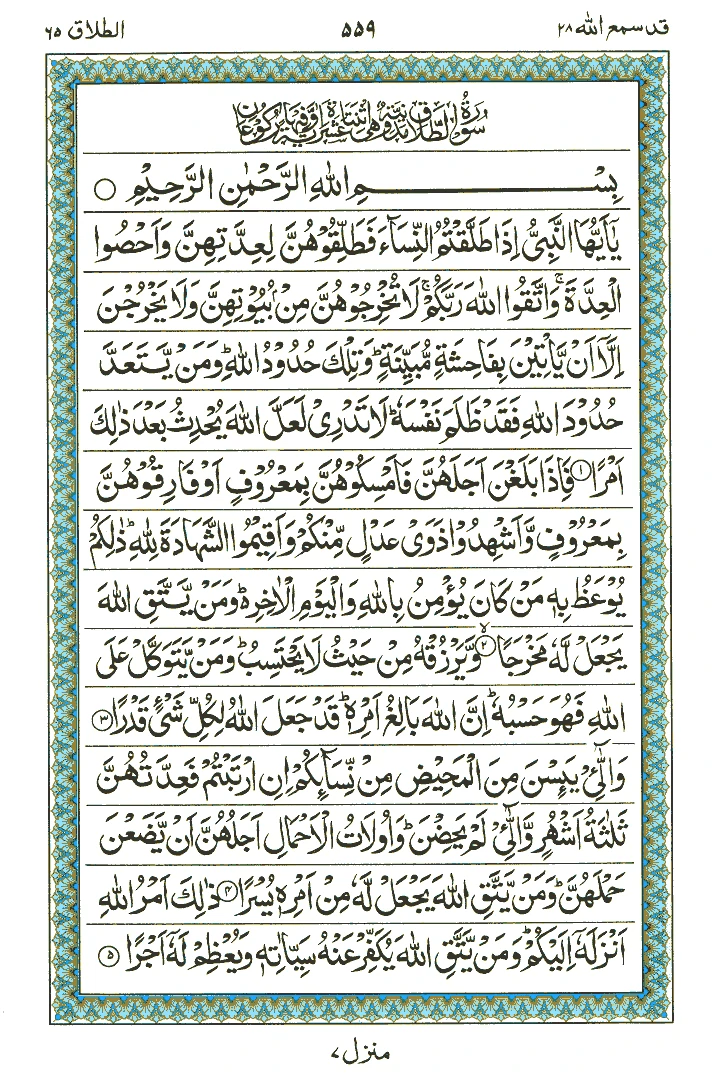 قد سمع الله ۲۸ ۵۵۹ الطلاق ۶۵
سُوْرَةُ الطَّلَاقِ مَدَنِيَّةٌ وَّهِيَ اثْنَتَا عَشْرَةَ اٰيَةً وَّفِيْهَا رُكُوْعَانِ
بِسْـــــــمِ اللهِ الرَّحْمٰنِ الرَّحِيْمِ ○
يٰۤاَيُّهَا النَّبِىُّ اِذَا طَلَّقْتُمُ النِّسَآءَ فَطَلِّقُوْهُنَّ لِعِدَّتِهِنَّ وَاَحْصُوا
الْعِدَّةَ ۚ وَاتَّقُوا اللهَ رَبَّكُمْ ۚ لَا تُخْرِجُوْهُنَّ مِنْۢ بُيُوْتِهِنَّ وَلَا يَخْرُجْنَ
اِلَّاۤ اَنْ يَّاْتِيْنَ بِفَاحِشَةٍ مُّبَيِّنَةٍ ؕ وَتِلْكَ حُدُوْدُ اللهِ ؕ وَمَنْ يَّتَعَدَّ
حُدُوْدَ اللهِ فَقَدْ ظَلَمَ نَفْسَهٗ ؕ لَا تَدْرِىْ لَعَلَّ اللهَ يُحْدِثُ بَعْدَ ذٰلِكَ
اَمْرًا ۝۱ فَاِذَا بَلَغْنَ اَجَلَهُنَّ فَاَمْسِكُوْهُنَّ بِمَعْرُوْفٍ اَوْ فَارِقُوْهُنَّ
بِمَعْرُوْفٍ وَّاَشْهِدُوْا ذَوَىْ عَدْلٍ مِّنْكُمْ وَاَقِيْمُوا الشَّهَادَةَ لِلّٰهِ ؕ ذٰلِكُمْ
يُوْعَظُ بِهٖ مَنْ كَانَ يُؤْمِنُ بِاللهِ وَالْيَوْمِ الْاٰخِرِ ؕ وَمَنْ يَّتَّقِ اللهَ
يَجْعَلْ لَّهٗ مَخْرَجًا ۙ۝۲ وَّيَرْزُقْهُ مِنْ حَيْثُ لَا يَحْتَسِبُ ؕ وَمَنْ يَّتَوَكَّلْ عَلَى
اللهِ فَهُوَ حَسْبُهٗ ؕ اِنَّ اللهَ بَالِغُ اَمْرِهٖ ؕ قَدْ جَعَلَ اللهُ لِكُلِّ شَىْءٍ قَدْرًا ۝۳
وَالّٰٓـىِٔيْ يَىِٕسْنَ مِنَ الْمَحِيْضِ مِنْ نِّسَآىِٕكُمْ اِنِ ارْتَبْتُمْ فَعِدَّتُهُنَّ
ثَلٰثَةُ اَشْهُرٍ وَّالّٰٓـىِٔيْ لَمْ يَحِضْنَ ؕ وَاُولَاتُ الْاَحْمَالِ اَجَلُهُنَّ اَنْ يَّضَعْنَ
حَمْلَهُنَّ ؕ وَمَنْ يَّتَّقِ اللهَ يَجْعَلْ لَّهٗ مِنْ اَمْرِهٖ يُسْرًا ۝۴ ذٰلِكَ اَمْرُ اللهِ
اَنْزَلَهٗۤ اِلَيْكُمْ ؕ وَمَنْ يَّتَّقِ اللهَ يُكَفِّرْ عَنْهُ سَيِّاٰتِهٖ وَيُعْظِمْ لَهٗۤ اَجْرًا ۝۵
منزل ۷